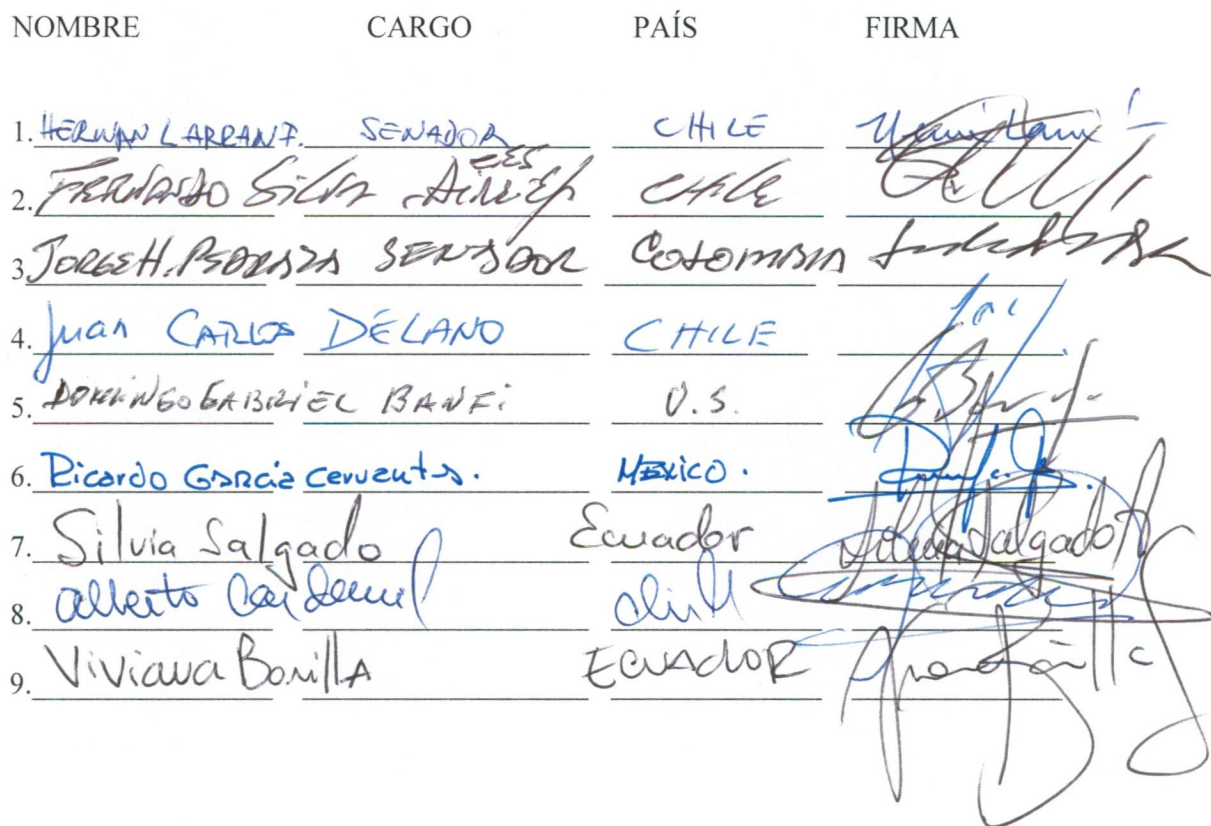 NOMBRE CARGO PAÍS FIRMA
1. HERNAN LARRANZ. SENADOR CHILE
2. FERNANDO SILVA CHILE
3. JORGE H. PEDRAZA SENADOR COLOMBIA
4. Juan CARLOS DÉLANO CHILE
5. DOMINGO GABRIEL BANFi U.S.
6. Ricardo García Cervantes. MEXICO.
7. Silvia Salgado Ecuador Silvia Salgado
8. Alberto Cardemil Chile
9. Viviana Bonilla ECUADOR